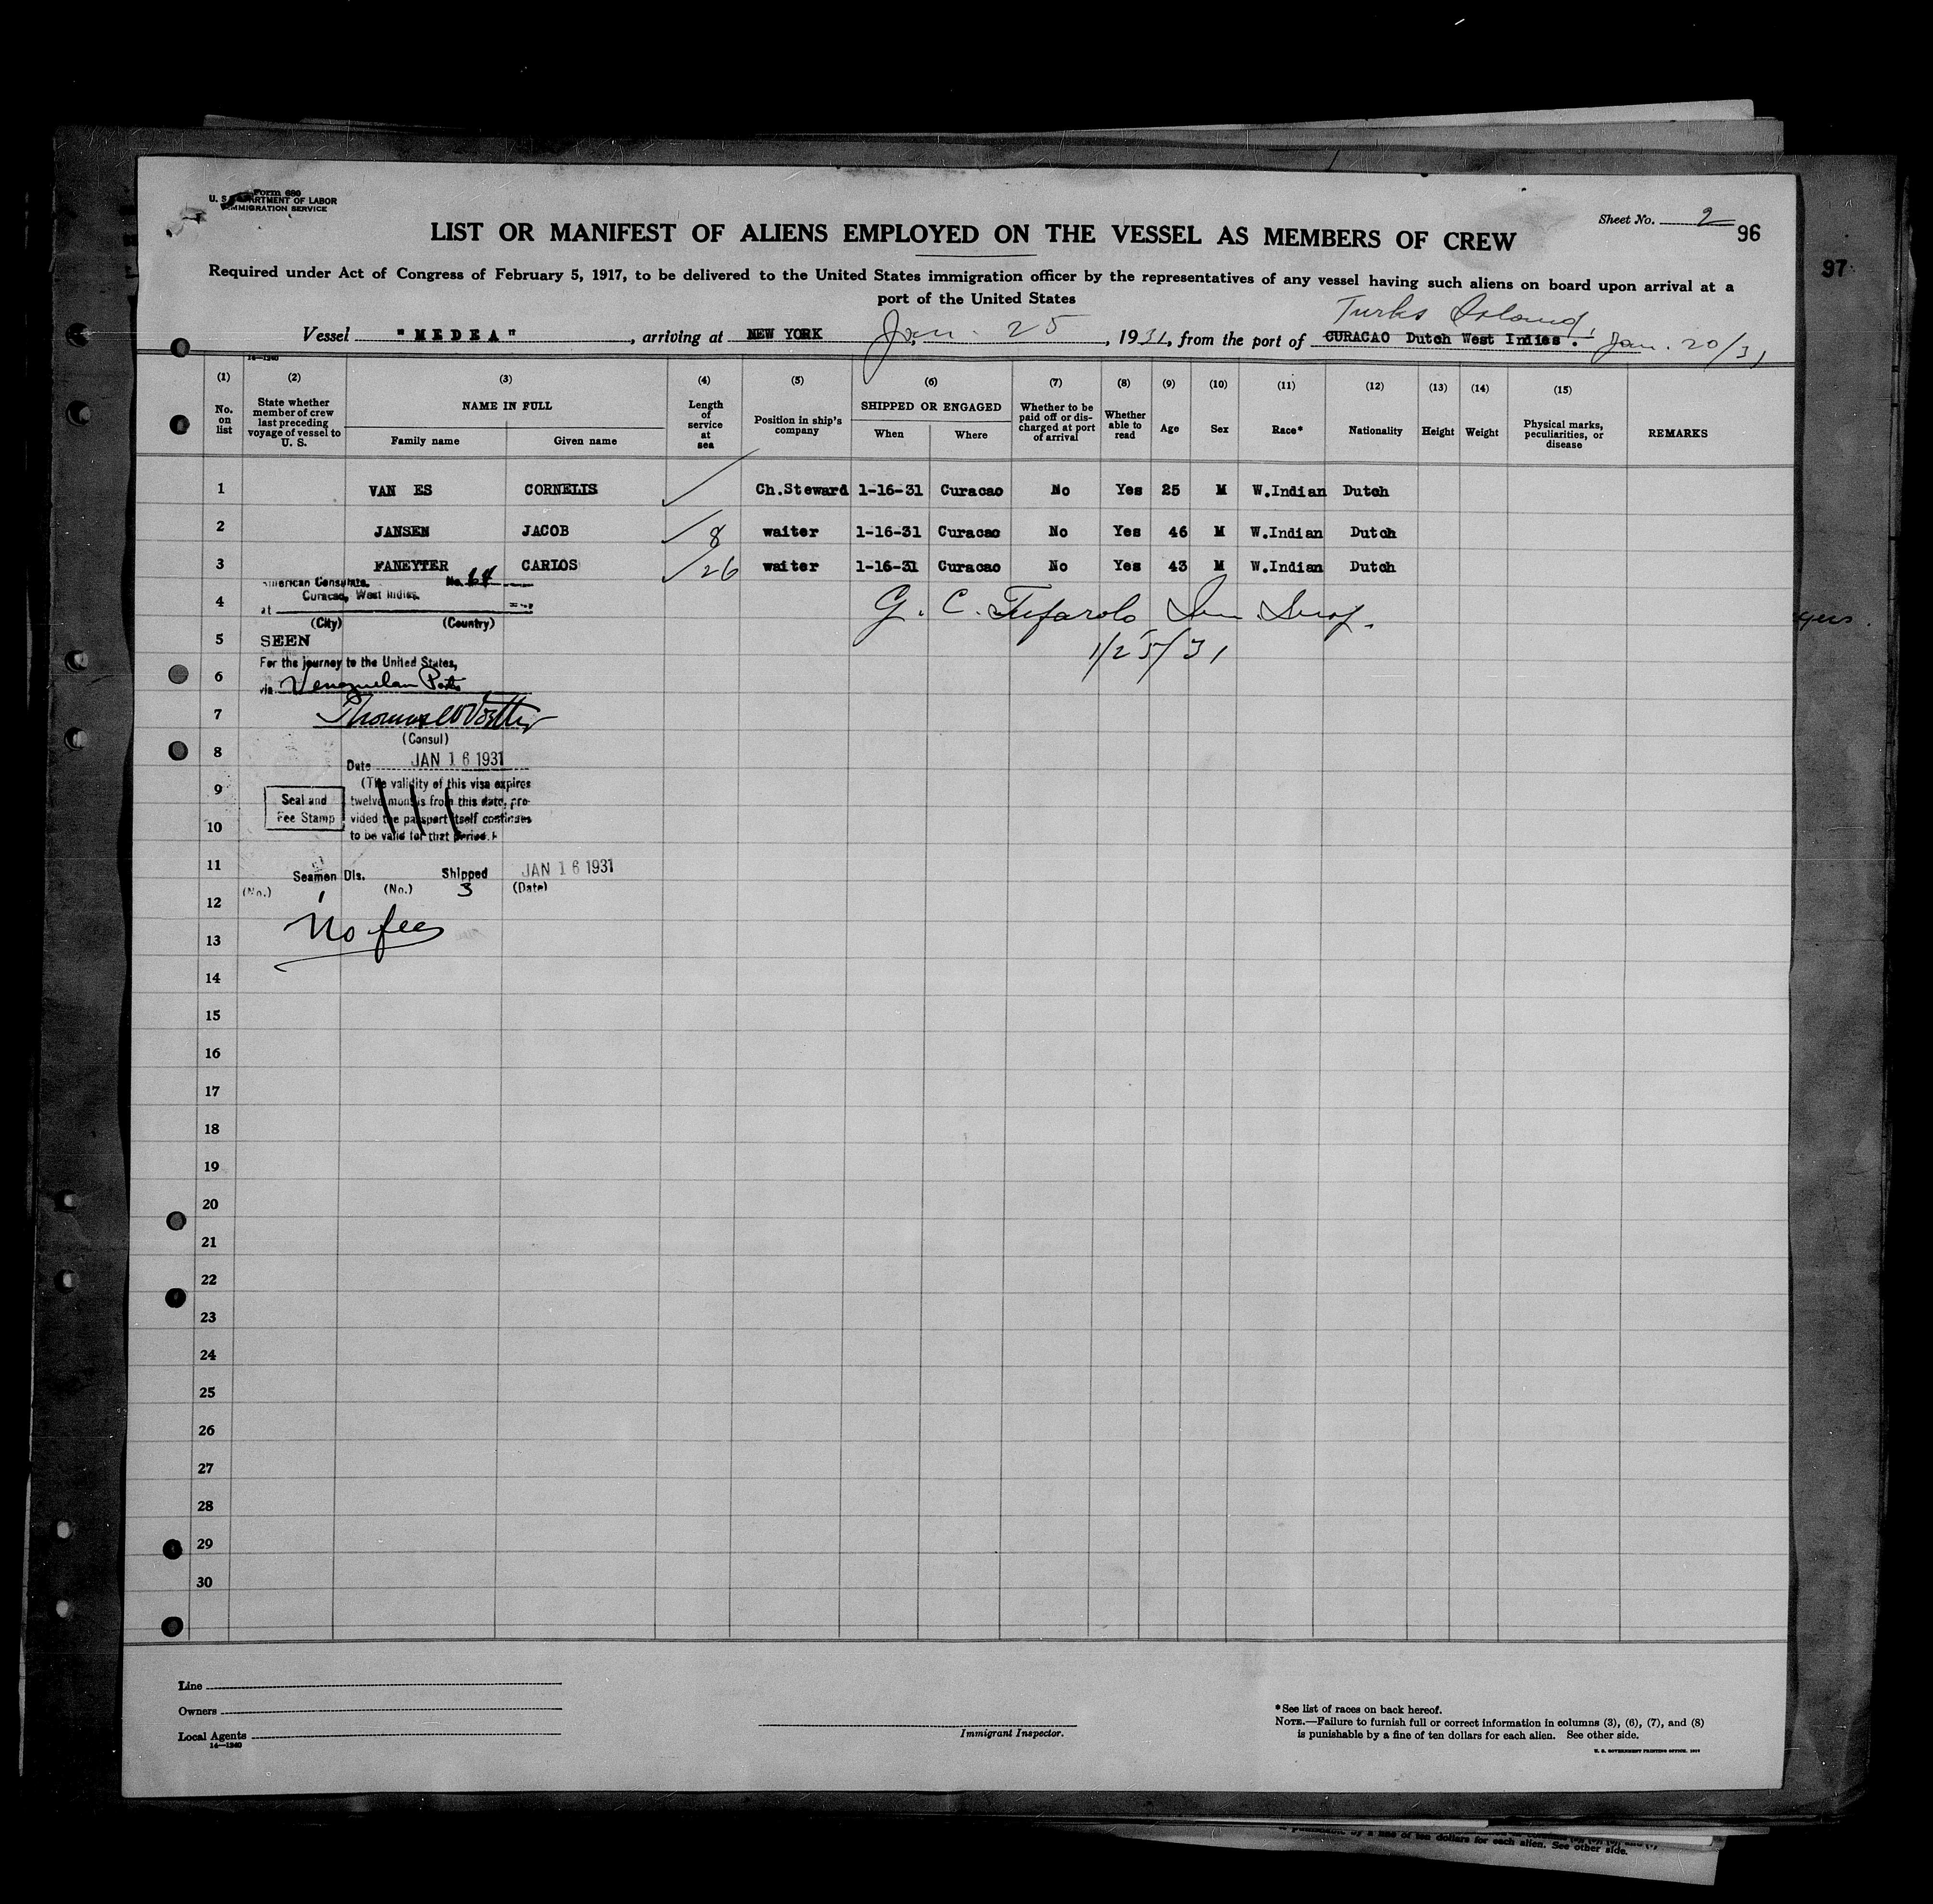 Form 680
U. S. DEPARTMENT OF LABOR
IMMIGRATION SERVICE
Sheet No. 2
96
97
LIST OR MANIFEST OF ALIENS EMPLOYED ON THE VESSEL AS MEMBERS OF CREW
Required under Act of Congress of February 5, 1917, to be delivered to the United States immigration officer by the representatives of any vessel having such aliens on board upon arrival at a
port of the United States
Turks Island,
Vessel "MEDEA", arriving at NEW YORK Jan. 25, 1931, from the port of CURACAO Dutch West Indies. Jan. 20/31
14—1240
(1) (2) (3) (4) (5) (6) (7) (8) (9) (10) (11) (12) (13) (14) (15)
No. on list
State whether member of crew last preceding voyage of vessel to U. S.
NAME IN FULL
Family name Given name
Length of service at sea
Position in ship's company
SHIPPED OR ENGAGED
When Where
Whether to be paid off or discharged at port of arrival
Whether able to read
Age
Sex
Race*
Nationality
Height
Weight
Physical marks, peculiarities, or disease
REMARKS
1 VAN ES CORNELIS Ch.Steward 1-16-31 Curacao No Yes 25 M W.Indian Dutch
2 JANSEN JACOB 8 waiter 1-16-31 Curacao No Yes 46 M W.Indian Dutch
3 FANEYTER CARLOS 26 waiter 1-16-31 Curacao No Yes 43 M W.Indian Dutch
American Consulate, No. 64
Curacao, West Indies.
4 at
G. C. Tufarolo Im Insp.
(City) (Country)
5 SEEN
1/25/31
For the journey to the United States,
6 via Venezuelan Ports
7
(Consul)
8 Date JAN 16 1931
9 (The validity of this visa expires
Seal and twelve months from this date, pro-
Fee Stamp vided the passport itself continues
10 to be valid for that period.)
11 Seamen Dis. Shipped JAN 16 1931
(No.) 1 (No.) 3 (Date)
12
No fee
13
14
15
16
17
18
19
20
21
22
23
24
25
26
27
28
29
30
Line
Owners
Local Agents
14—1240
Immigrant Inspector.
*See list of races on back hereof.
NOTE.—Failure to furnish full or correct information in columns (3), (6), (7), and (8)
is punishable by a fine of ten dollars for each alien. See other side.
U. S. GOVERNMENT PRINTING OFFICE
for each alien. See other side.